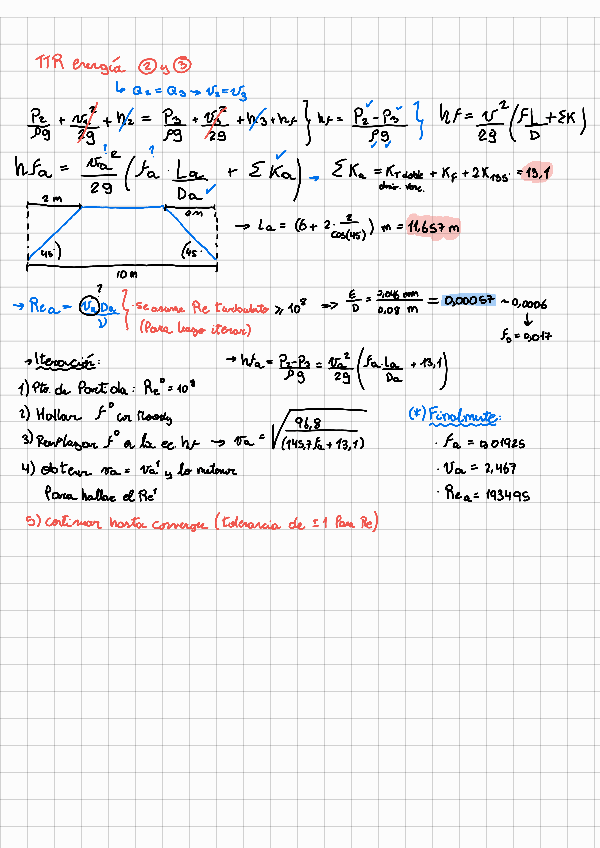 TTR energía ② y ③
↳ Q₂ = Q₃ → v₂ = v₃
P₂/ρg + v₂²/2g + h₂ = P₃/ρg + v₃²/2g + h₃ + hf } hf = P₂ - P₃/ρg } hf = v²/2g (fL/D + ΣK)
hfa = va²/2g (fa · La/Da + ΣKa) → ΣKa = KT doble + KF + 2K135 = 13,1
2 m
2 m
45°
45°
10 m
→ La = (6 + 2 · 2/cos(45)) m = 11,657 m
→ Rea = va Da/ν { se asume Re turbulento ≥ 10⁸ ⇒ E/D = 0,046 mm/0,08 m = 0,00057 ~ 0,0006
(Para luego iterar)
f₀ = 0,017
→ Iteración:
→ hfa = P₂-P₃/ρg = va²/2g (fa·La/Da + 13,1)
1) Pto. de Partida: Re⁰ = 10⁸
2) Hallar f⁰ con Moody
3) Reemplazar f⁰ en la ec. hf → va = √96,8/(145,7fa + 13,1)
4) obtener va = va¹ y lo
Para hallar el Re¹
5) continuar hasta converger (tolerancia de ±1 Para Re)
(*) Finalmente:
· fa = 0,01925
· va = 2,467
· Rea = 193495